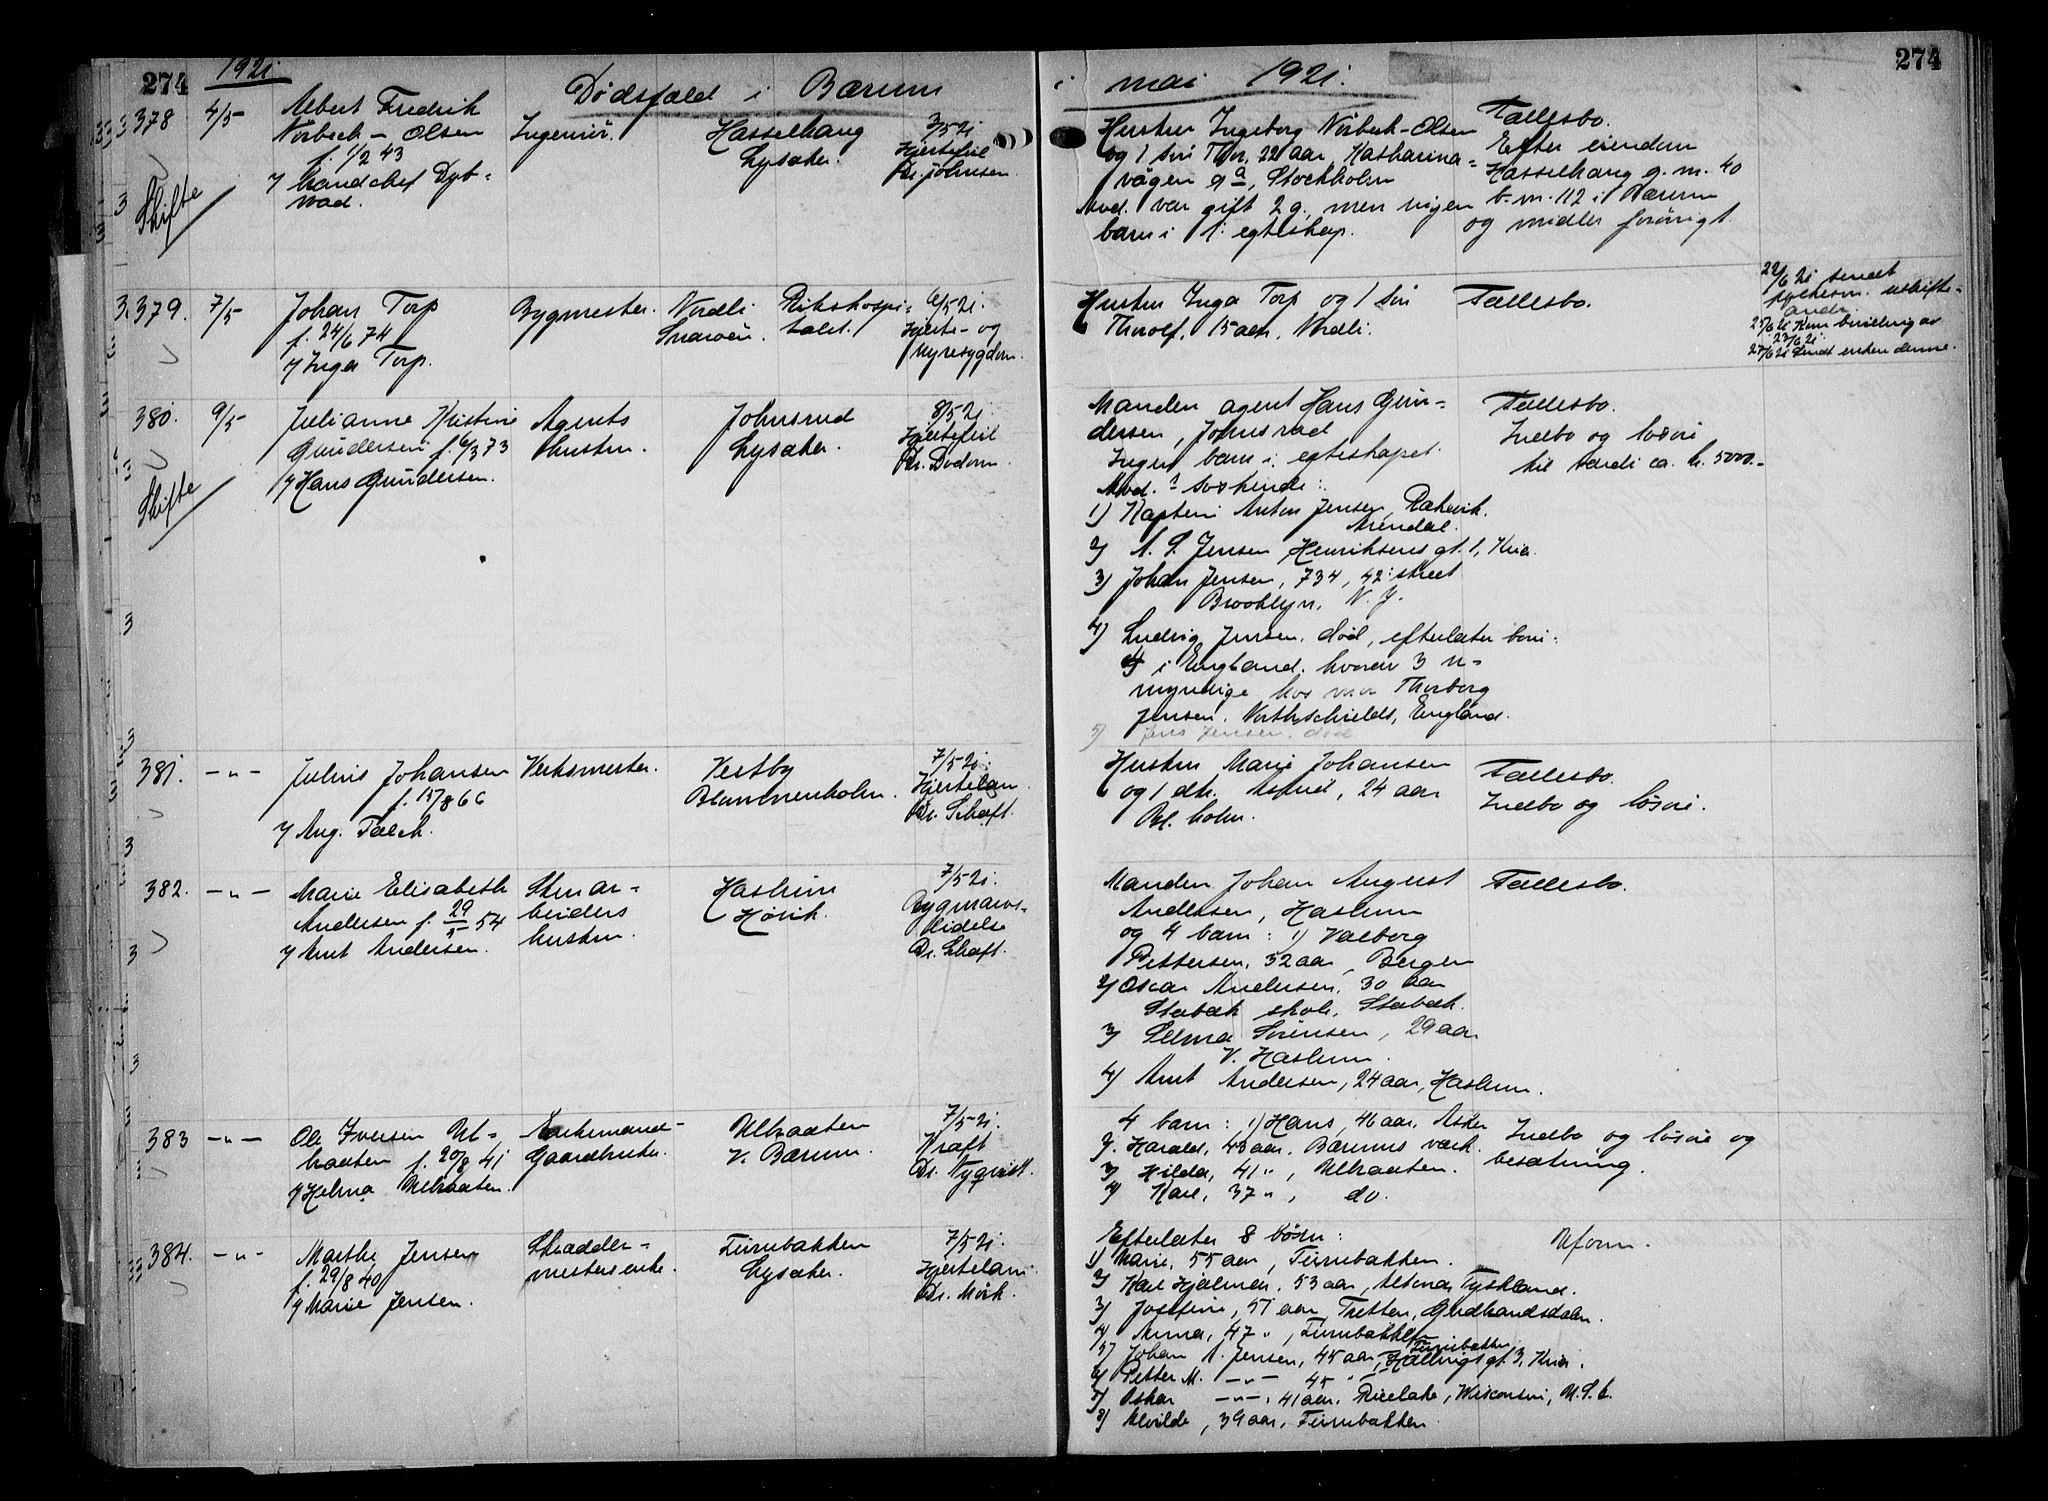 274 1921
Dødsfald i Bærum
378 4/5 Albert Fredrik
Nørbech-Olsen
f. 1/2 43
Ingeniør.
Hasselhaug
Lysaker.
3/5 21
Hjertefeil
Dr. Johnsen.
Skifte
379. 7/5 Johan Torp
f. 24/6 74
/ Inga Torp.
Bygmester.
Nordli
Snarøen.
Rikshospi-
talet.
6/5 21.
Hjerte- og
Nyresygdom.
380. 9/5 Julianne Kristine
Gundersen f. 6/3 73
/ Hans Gundersen.
Agents
hustru.
Johnsrud
Lysaker.
8/5 21.
Hjertefeil
Skifte
381. -"- Julius Johansen
f. 15/8 66
/ Aug. Falch.
Verksmester.
Vestby
Blommenholm.
7/5 21.
Hjertelam.
Dr. Schaft.
382. -"- Marie Elisabeth
Andersen f. 29/5 54
/ Arnt Andersen.
Stenar-
beiders
hustru.
Haslum
Høvik.
7/5 21.
Rygmarvs-
lidelse
Dr. Schaft.
383 -"- Ole Iversen Ul-
braaten f. 20/8 41
/ Helma Ulbraaten.
Gaardbruker.
Ulbraaten
V. Bærum.
7/5 21.
Kræft
Dr. Nyqvist.
384. -"- Marthe Jensen
f. 29/8 40
/ Marie Jensen.
Skrædder-
mesterenke.
Furubakken
Lysaker.
7/5 21.
Hjertelam.
Dr. Mørk.
i mai 1921. 274
Hustru Ingeborg Nørbech-Olsen
og 1 søn Thor, 22 aar, Katharina-
vägen 9 a, Stockholm
Avd. var gift 2 g., men ingen
barn i 1. egteskap.
Fællesbo.
Efter eiendom
Hasselhaug g.nr. 40
b.nr. 112 i Bærum
og midler forøvrigt.
Hustru Inga Torp og 1 søn
Thorolf, 15 aar, Nordli.
Fællesbo.
Manden agent Hans Gun-
dersen, Johnsrud
Ingen barn i egteskapet.
Avd. søskende:
1) Kaptein Anton Jensen, Rækevik.
Arendal.
2) A. S. Jensen Henriksens gt. 1, Kria.
3) Johan Jensen, 734, 42. street
Brooklyn, N. Y.
4) Ludvig Jensen, død, efterlater barn:
4 i England, hvorav 3 u-
myndige hos mor Thorborg
Jensen, Northschields, England.
5) Jens Jensen, død
Fællesbo.
Indbo og løsøre
til værdi ca. kr. 5000.-
Hustru Marie Johansen
og 1 dtr. Astrid, 24 aar
Bl. holm.
Fællesbo.
Indbo og løsøre.
Manden Johan August
Andersen, Haslum
og 4 barn: 1) Valborg
Pettersen, 32 aar, Bergen
2) Oscar Andersen, 30 aar
Stabæk skole, Stabæk.
3) Selma Sørensen, 29 aar
V. Haslum.
4) Arnt Andersen, 24 aar, Haslum.
Fællesbo.
4 barn: 1) Hans, 46 aar, Asker
2) Harald, 43 aar, Bærums værk.
3) Hilda, 41 ", Ulbraaten.
4) Karl, 37 ", do.
Indbo og løsøre og
besætning.
Efterlater 8 børn:
1) Marie, 55 aar, Furubakken.
2) Karl Hjalmar, 53 aar, Altona, Tyskland.
3) Josefine, 51 aar, Tretten, Gudbrandsdalen.
4) Anna, 47 ", Furubakken
5) Johan A. Jensen, 45 aar, Hallings gt. 3, Kria.
6) Petter M. -"- 45 " Furubakken
7) Oskar -"-, 41 aar, Ricelake, Wisconsin, U.S.A.
8) Alvilde, 39 aar, Furubakken
Uform.